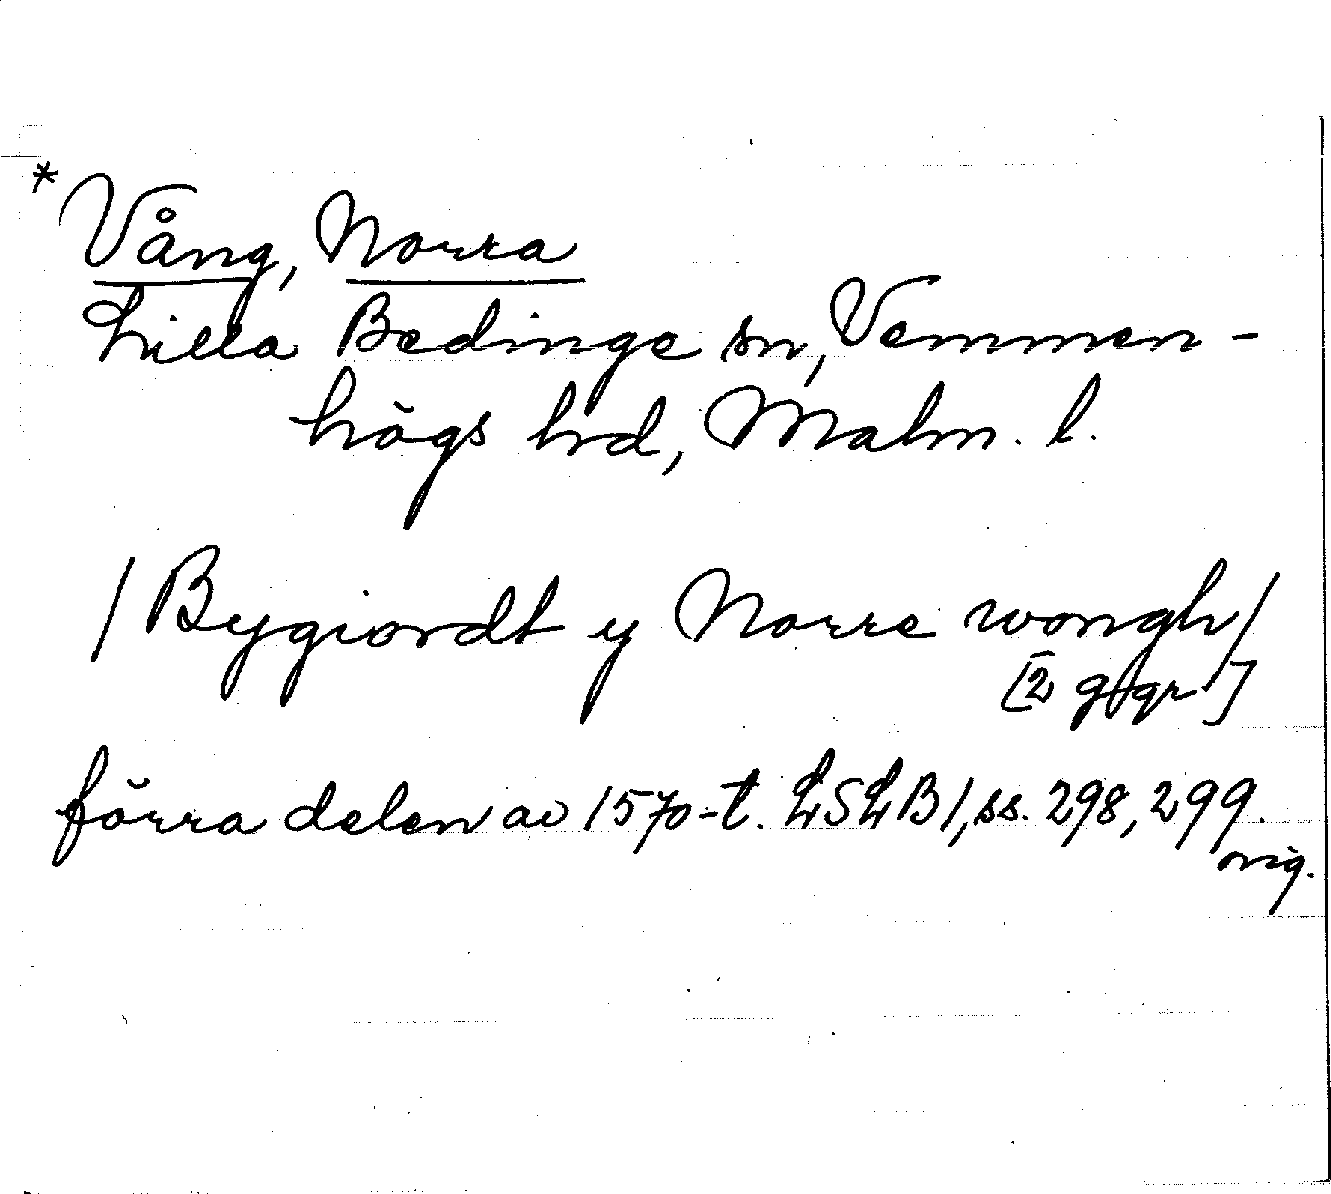 * Vång, Norra
Lilla Bedinge sn, Vemmen-
högs hrd, Malm. l.
/Bygiordt y Norre wongh/
[2 ggr]
förra delen av 1570-t. LSLB1, ss. 298, 299.
orig.